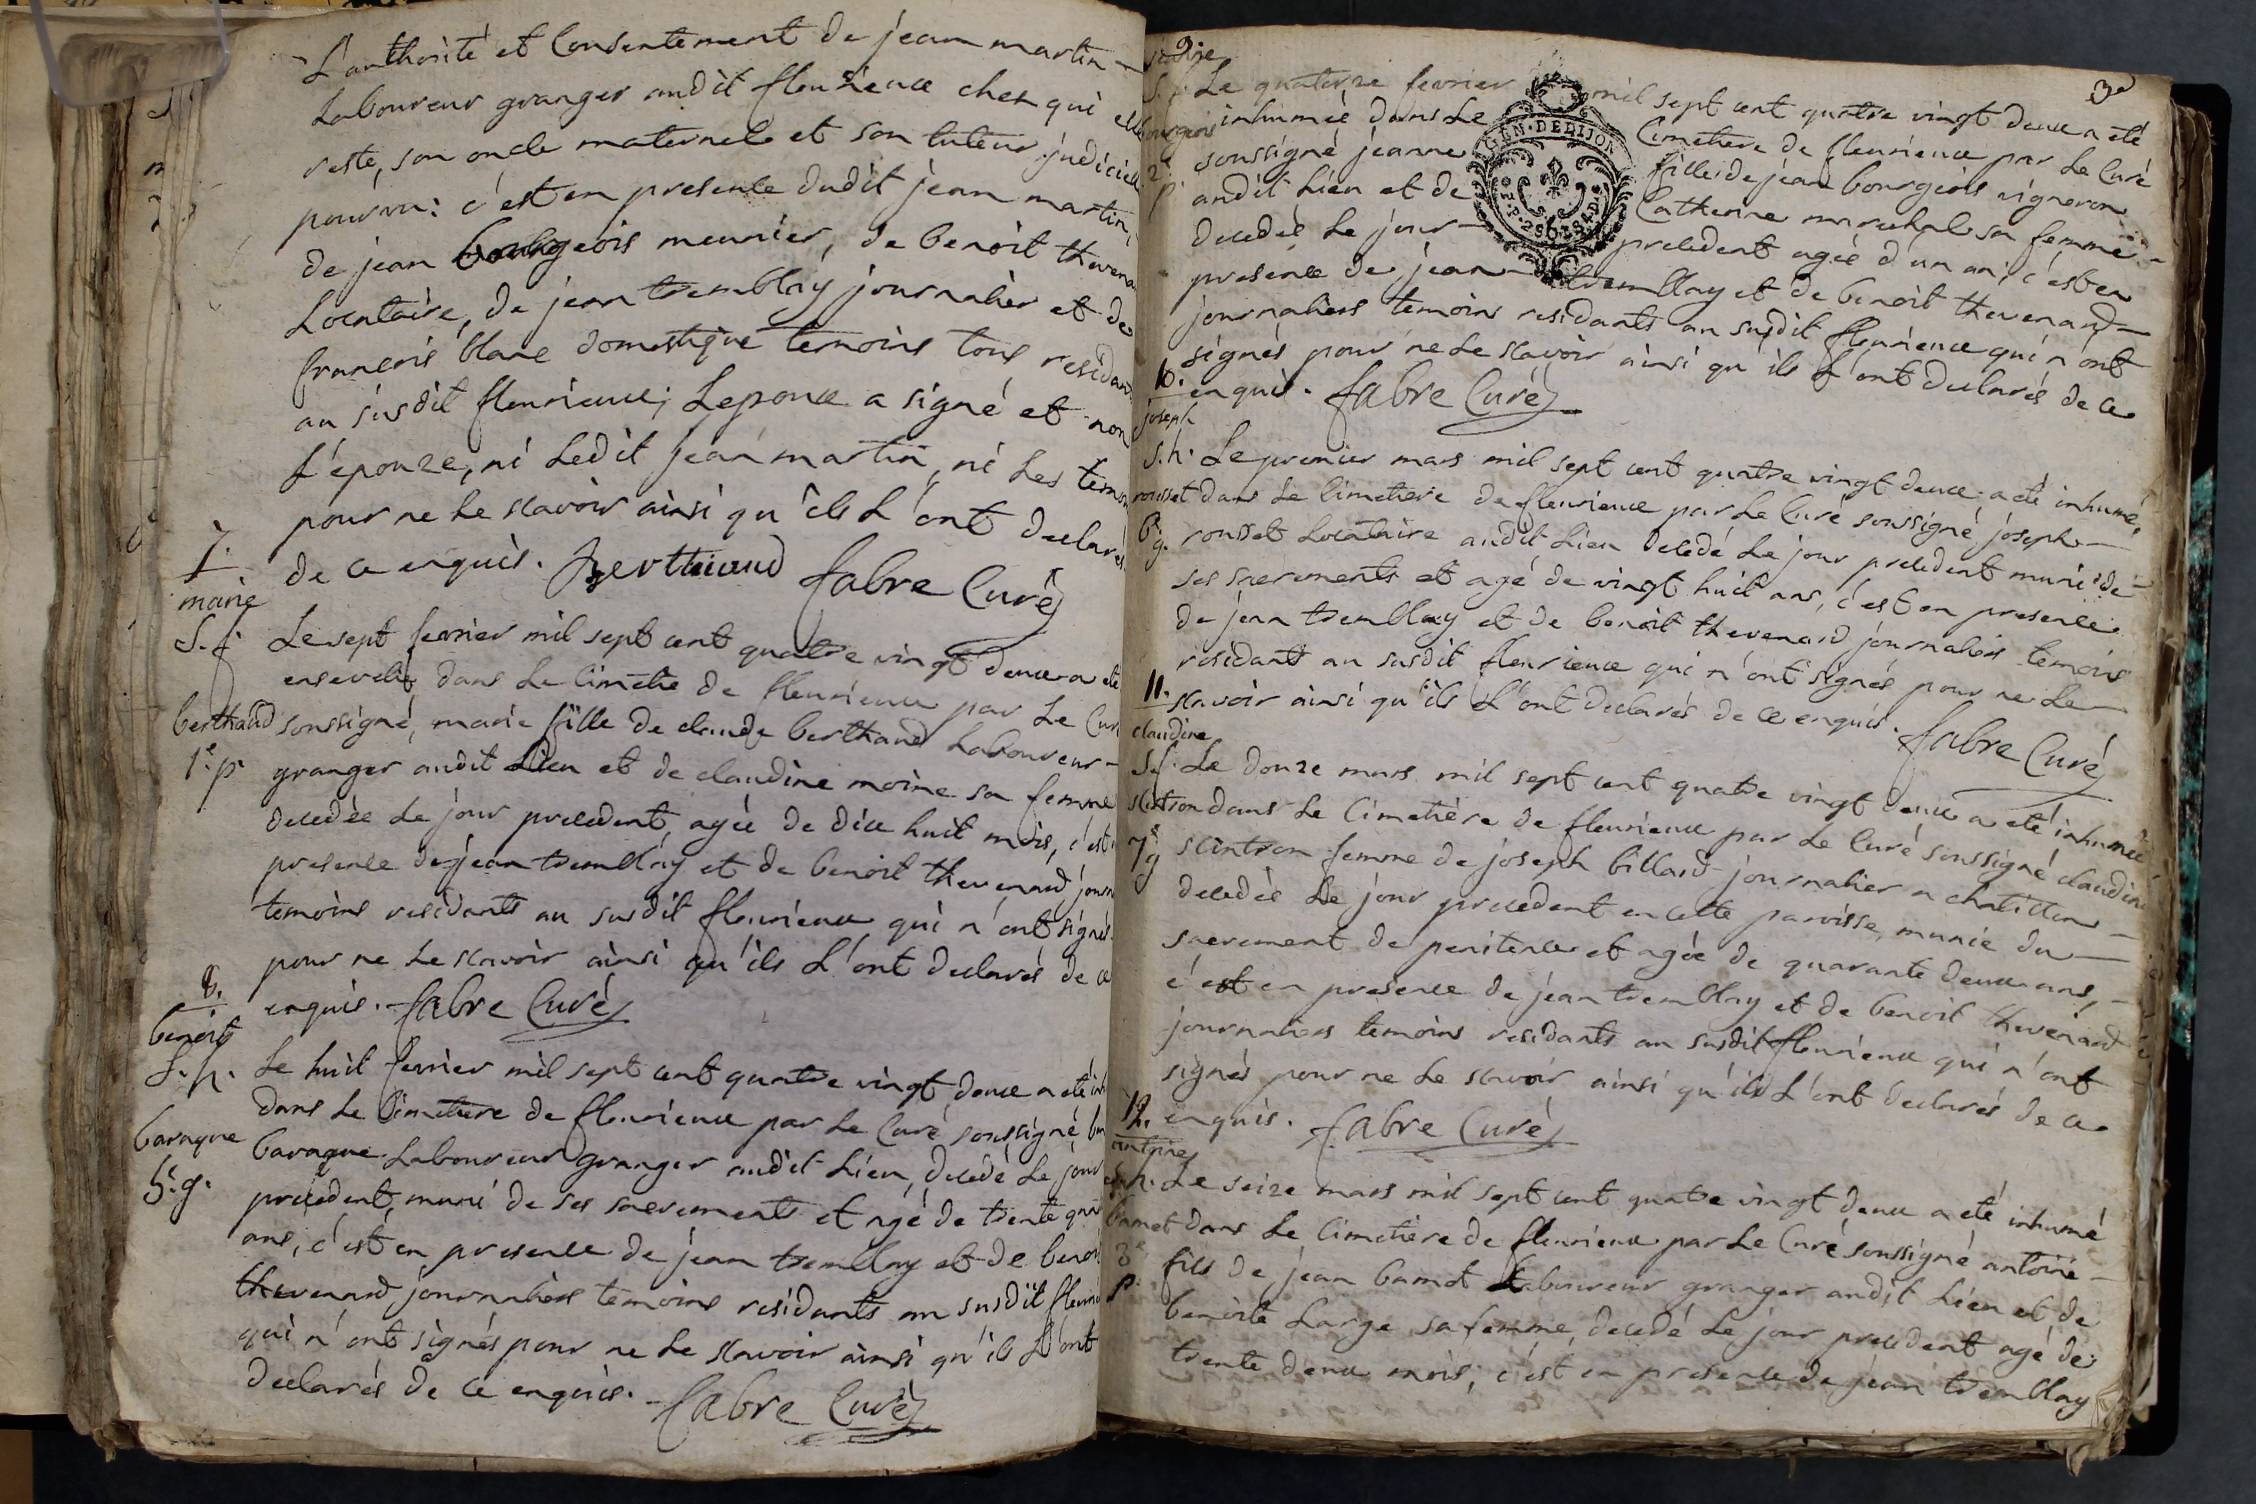 L'authorité et Consentement de jean martin
Laboureur granger audit fleurieux chez qui elle
reste, son oncle maternel et son tuteur judiciel.
pourvu: c'est en presence dudit jean martin,
de jean bourgeois meunier, de benoit thevena
Locataire, de jean tremblay journalier et de
francois blanc domestique temoins tous residan
au susdit fleurieux; Lepoux a signé et non
L'epouze, ni Ledit jean martin, ni Les temo
pour ne Le scavoir ainsi qu'ils L'ont declarés
de ce enquis. Berthaud fabre Curé
7.
marie
S. f.
berthaud
1.e p.
Le sept fevrier mil sept cent quatre vingt deux a eté
ensevelie dans Le Cimetie de fleurieux par Le Curé
soussigné, marie fille de claude berthaud Laboureur
granger audit Lieu et de claudine moine sa femme
decedée Le jour precedent, agée de dix huit mois, c'est
presence de jean tremblay et de benoit thevenard journ
temoins residants au susdit fleurieux qui n'ont signés
pour ne Le scavoir ainsi qu'ils L'ont declarés de ce
enquis. fabre Curé
8.
benoit
S. h.
baraque
5.e g.
Le huit fevrier mil sept cent quatre vingt deux a eté inh
dans Le Cimetiere de fleurieux par Le Curé soussigné, be
baraque Laboureur granger audit Lieu, decedé Le jour
precedent, muni de ses sacrements et agé de trente qua
ans, c'est en presence de jean tremblay et de benoi
thevenard journaliers temoins residants au susdit fleurie
qui n'ont signés pour ne Le scavoir ainsi qu'ils L'ont
declarés de ce enquis. fabre Curé
3e
GEN. DE DIJON
Le quatorze fevrier mil sept cent quatre vingt deux a eté
inhumée dans Le Cimetiere de fleurieux par Le Curé
soussigné jeanne fille de jean bourgeois vigneron
audit Lieu et de Catherine marechal sa femme
decedée Le jour precedent agée d'un an, c'est en
presence de jean tremblay et de benoit thevenard
journaliers temoins residants au susdit fleurieux qui n'ont
signés pour ne Le scavoir ainsi qu'ils L'ont declarés de ce
enquis. fabre Curé
10.
joseph
S. h.
rousset
6.e g.
Le premier mars mil sept cent quatre vingt deux a eté inhumé
dans Le Cimetiere de fleurieux par Le Curé soussigné joseph
rousset Locataire audit Lieu decedé Le jour precedent muni de
ses sacrements et agé de vingt huit ans, c'est en presence
de jean tremblay et de benoit thevenard journaliers temoins
residants au susdit fleurieux qui n'ont signés pour ne Le
scavoir ainsi qu'ils L'ont declarés de ce enquis. fabre Curé
11.
claudine
S. f.
7.e g
Le douze mars mil sept cent quatre vingt deux a eté inhumée
dans Le Cimetière de fleurieux par Le Curé soussigné claudine
femme de joseph billard journalier a chatillon
decedée Le jour precedent en cette paroisse, munie du
sacrement de penitence et agée de quarante deux ans,
c'est en presence de jean tremblay et de benoit thevenard
journaliers temoins residants au susdit fleurieux qui n'ont
signés pour ne Le scavoir ainsi qu'ils L'ont declarés de ce
enquis. fabre Curé
12.
antoine
S. h.
bamet
3.e
p.
Le seize mars mil sept cent quatre vingt deux a eté inhumé
dans Le Cimetière de fleurieux par Le Curé soussigné antoine
fils de jean bamet Laboureur granger audit Lieu et de
benoite Large sa femme, decedé Le jour precedent agé de
trente deux mois; c'est en presence de jean tremblay